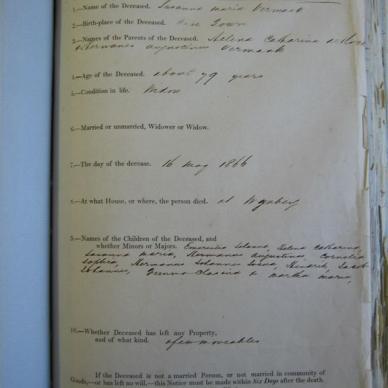 1.—Name of the Deceased. Susanna Maria Vermaak
2.—Birth-place of the Deceased. Town
3.—Names of the Parents of the Deceased. Helena Catharina de
Hermanus Augustinus Vermaak
4.—Age of the Deceased. about 79 years
5.—Condition in life. Widow
6.—Married or unmarried, Widower or Widow.
7.—The day of the decease. 16 May 1866
8.—At what House, or where, the person died. at
9.—Names of the Children of the Deceased, and
whether Minors or Majors. Helena Catharina,
Susanna Maria, Hermanus Augustinus, Cornelia
Sophia, Hermanus Johannes Hendrik, Jacob
Johannes, & Martha Maria,
10.—Whether Deceased has left any Property,
and of what kind. a few moveables
If the Deceased is not a married Person, or not married in community of
Goods,—or has left no will,—this Notice must be made within Six Days after the death